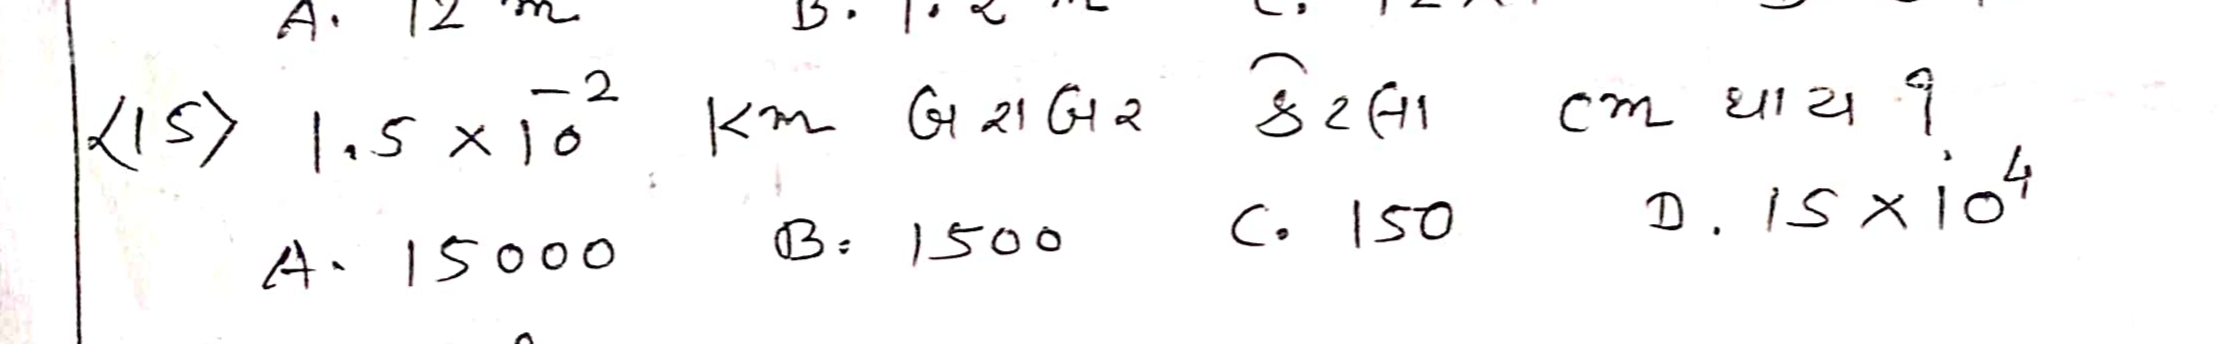 A. 12 m B. 1.2 m
<15> 1.5 × 10⁻² km બરાબર કેટલા cm થાય ?
A. 15000 B. 1500 C. 150 D. 15 × 10⁴